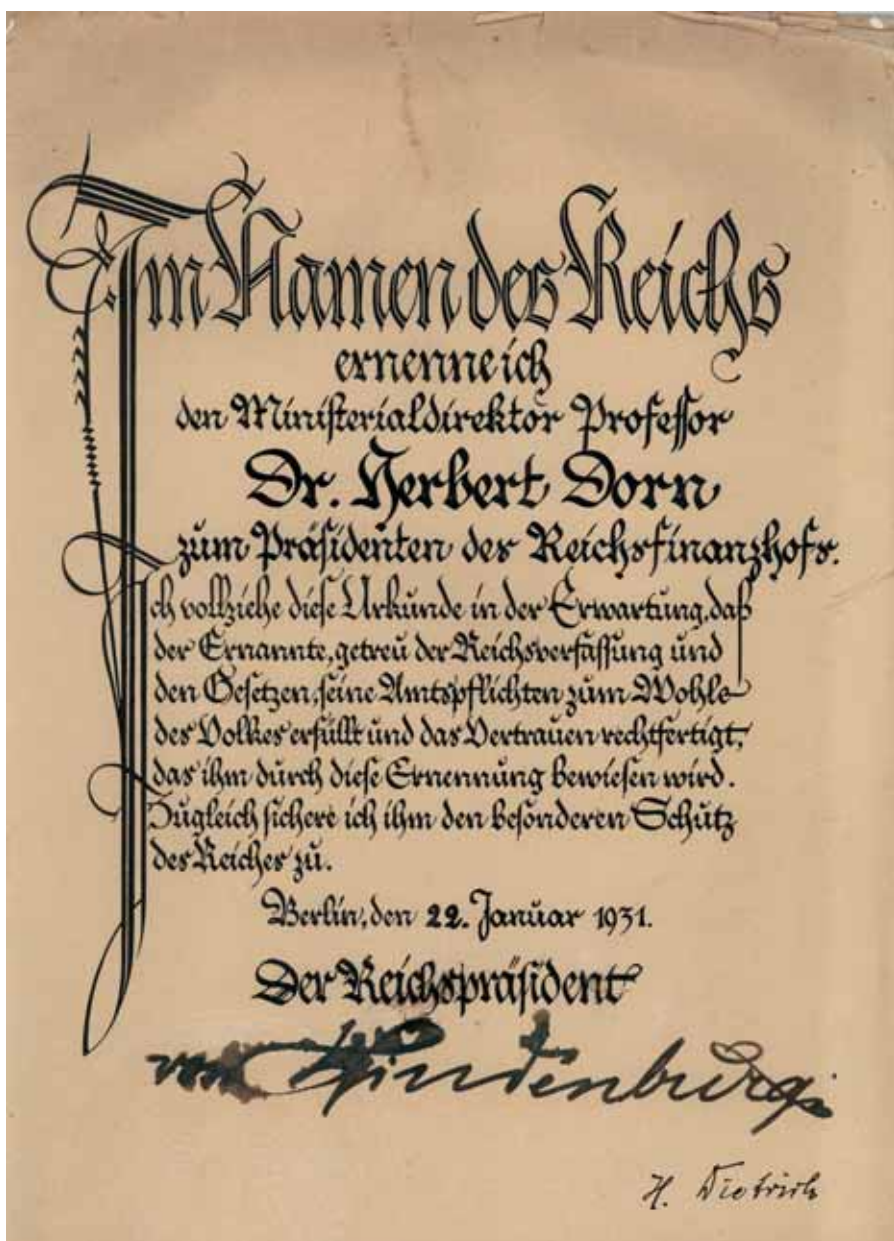 Im Namen des Reichs
ernenne ich
den Ministerialdirektor Professor
Dr. Herbert Dorn
zum Präsidenten des Reichsfinanzhofs.
Ich vollziehe diese Urkunde in der Erwartung, daß
der Ernannte, getreu der Reichsverfassung und
den Gesetzen, seine Amtspflichten zum Wohle
des Volkes erfüllt und das Vertrauen rechtfertigt,
das ihm durch diese Ernennung bewiesen wird.
Zugleich sichere ich ihm den besonderen Schutz
des Reiches zu.
Berlin, den 22. Januar 1931.
Der Reichspräsident
von Hindenburg
H. Dietrich